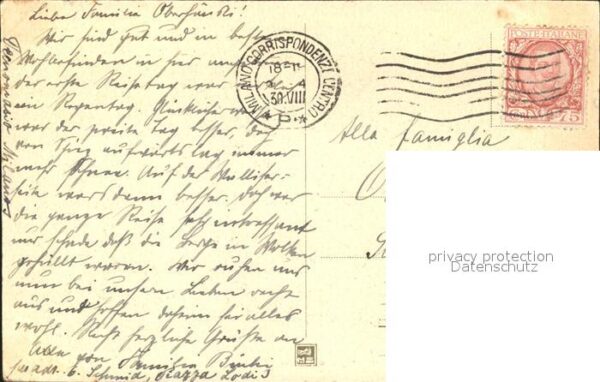 Liebe Familie
Wir sind gut und in bestem
Wohlbefinden in hier
der erste Reisetag war
ein Regentag.
war der zweite Tag besser, doch
von aufwärts lag immer
mehr Schnee. Auf der Walliser-
seite wars dann besser, doch war
die ganze Reise sehr interessant
nur schade daß die Berge in Wolken
gehüllt waren. Wir ruhen uns
nun bei unsern Lieben recht
aus und hoffen daheim sei alles
wohl. Recht herzliche Grüße an
Alle von Familie
p. adr. G. Schmid, Piazza Lodi 3
Milano
MILANO CORRISPONDENZE CENTRO
18-
30.VIII
* P. *
POSTE ITALIANE
75
Alla famiglia
privacy protection
Datenschutz